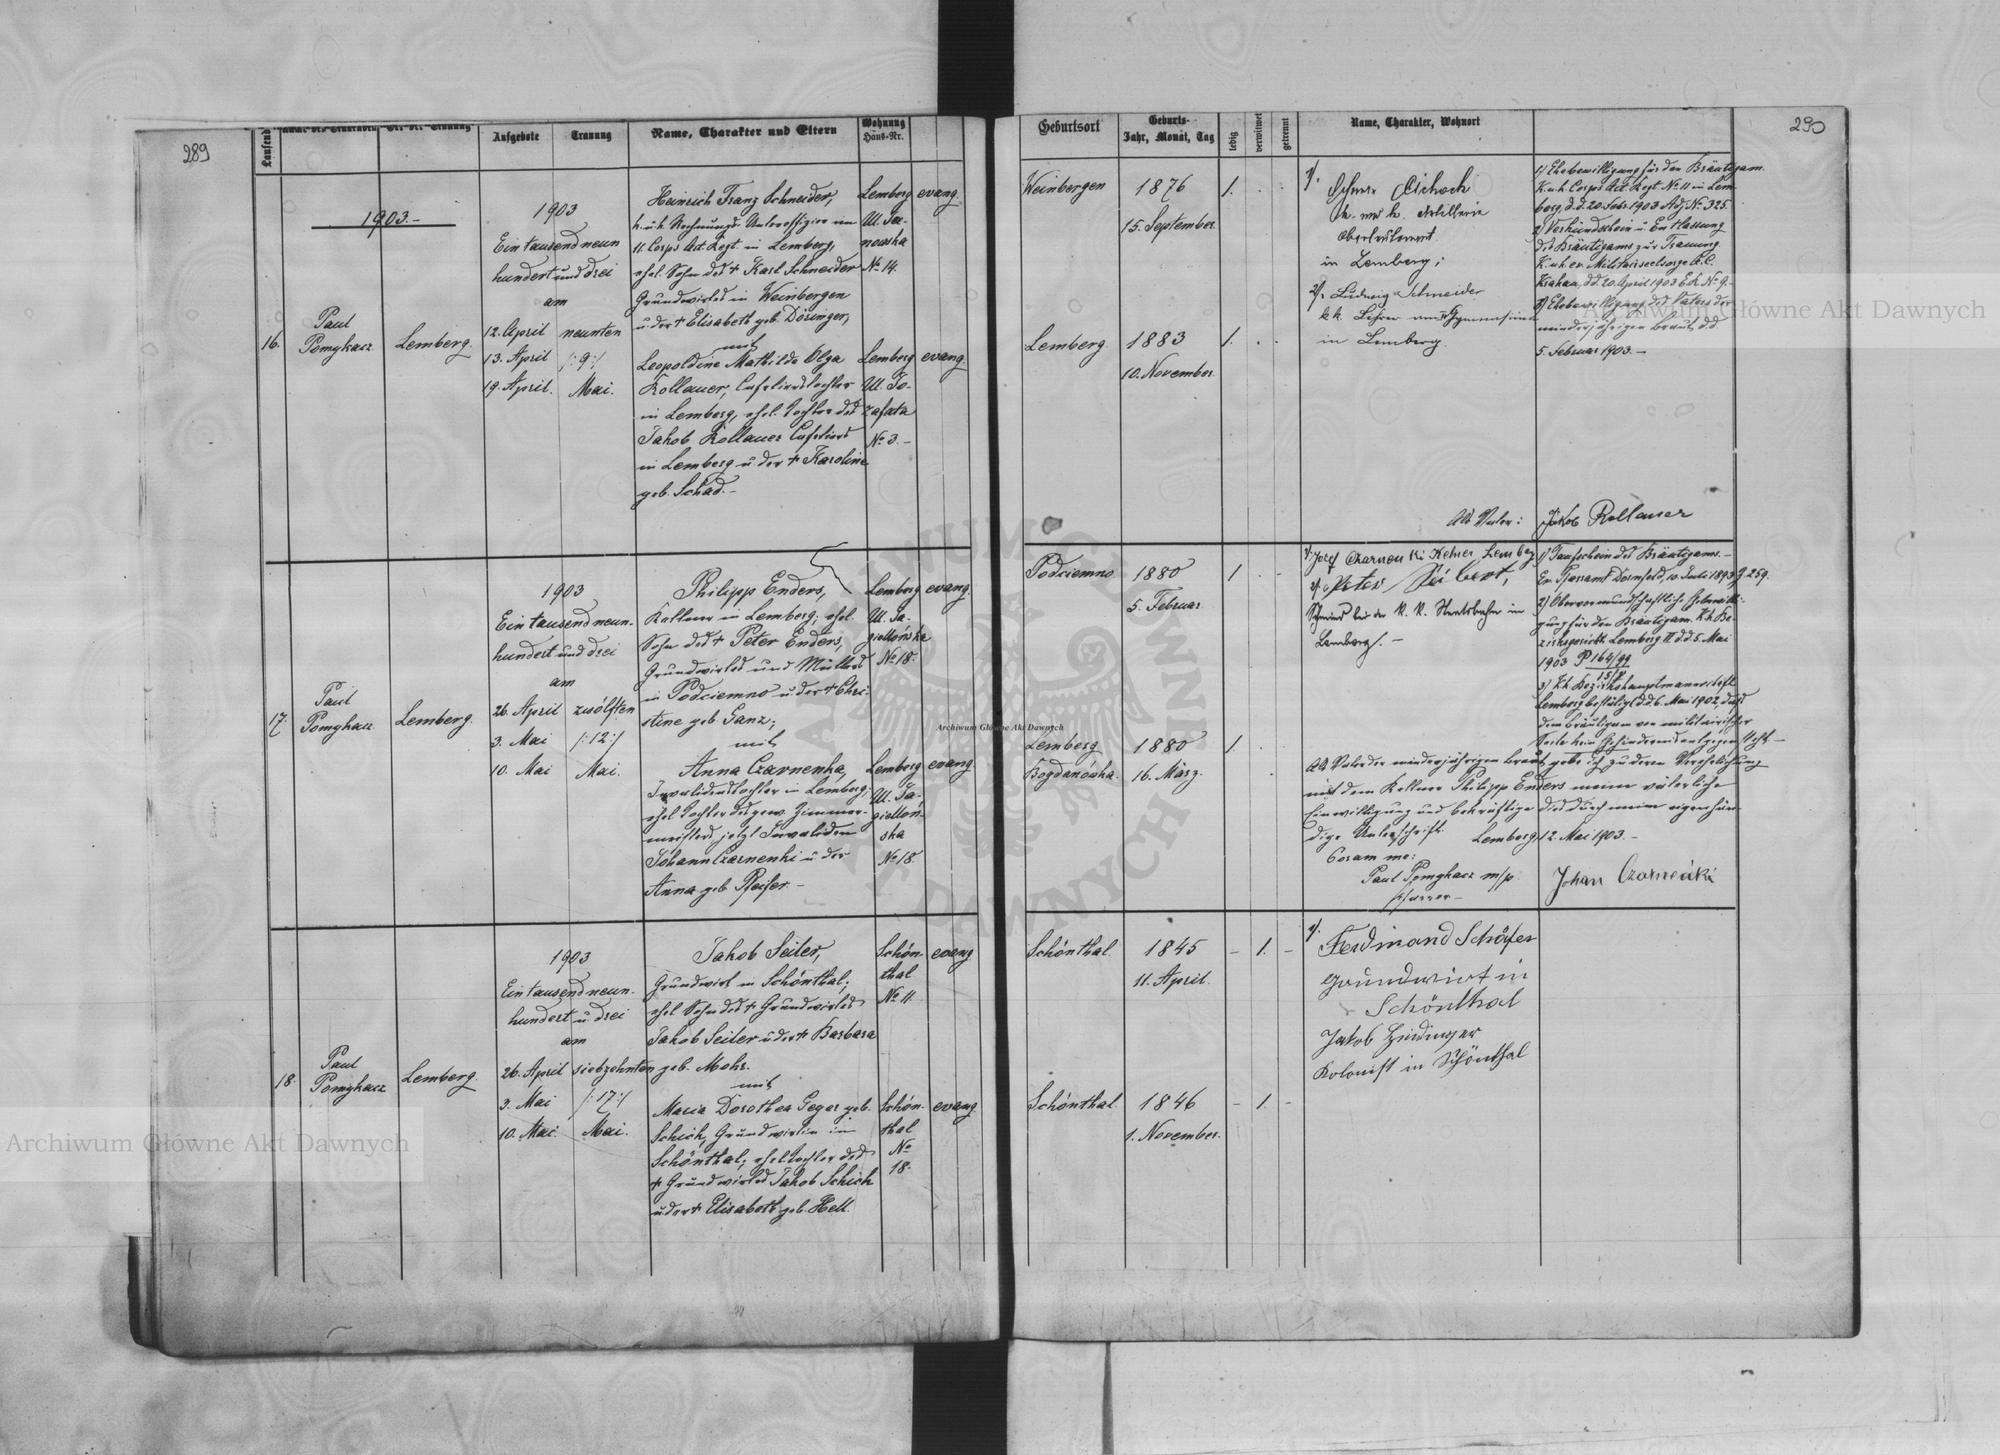 289
Laufend
Aufgebote
Trauung
Name, Charakter und Eltern
Wohnung
Haus-Nr.
1903.-
16.
Paul
Pomykacz
Lemberg.
1903
Ein tausend neun
hundert und drei
am
12. April neunten
13. April /:9:/
19. April. Mai.
Heinrich Franz Schneider,
k. u. k. Rechnungs-Unteroffizier im
11. Corps Art. Regt. in Lemberg,
ehel. Sohn des + Karl Schneider
Grundwirtes in Weinbergen
u. der + Elisabeth geb. Döringer,
mit
Leopoldine Mathilde Olga
Kollauer, Cafetierstochter
in Lemberg, ehel. Tochter des
Jakob Kollauer Cafetiers
in Lemberg u. der + Karoline
geb. Schad.-
Lemberg
Ul. Ja-
nowska
No 14.
evang.
Lemberg
Ul. Jo-
zafata
No 3.-
evang.
17.
Paul
Pomykacz
Lemberg.
1903
Ein tausend neun-
hundert und drei
am
26. April zwölften
3. Mai /:12:/
10. Mai Mai.
Philipp Enders,
Kellner in Lemberg, ehel.
Sohn des + Peter Enders,
Grundwirtes und Müllers
in Podciemno u. der + Chri-
stine geb. Ganz;
mit
Anna Czarnenka,
Invalidenstochter in Lemberg,
ehel. Tochter des gew. Zimmer-
meisters jetzt Invaliden
Johann Czarnenki u. der
Anna geb. Pfeifer.-
Lemberg
Ul. Ja-
giellońska
No 18.
evang.
Lemberg
Ul. Ja-
giellon-
ska
No 18.
evang
18.
Paul
Pomykacz
Lemberg.
1903
Ein tausend neun-
hundert u. drei
am
26. April siebzehnten
3. Mai /:17:/
10. Mai. Mai.
Jakob Seiler,
Grundwirt in Schönthal,
ehel. Sohn des + Grundwirtes
Jakob Seiler u. der + Barbara
geb. Mohr.
mit
Maria Dorothea Geger geb.
Schick, Grundwirtin in
Schönthal, ehel. Tochter des
+ Grundwirtes Jakob Schick
u. der + Elisabeth geb. Hell.
Schön-
thal
No 11.
evang
Schön-
thal
No
18.
evang.
290
Geburtsort
Geburts-
Jahr, Monat, Tag
ledig
verwitwet
getrennt
Name, Charakter, Wohnort
Weinbergen
1876
15. September.
1.
Lemberg.
1883
10. November.
1.
k. und k. Artillerie
Oberleutenant
in Lemberg;
2/. Ludwig Schneider
k. k. Lehrer Gymnasium
in Lemberg.
1/ Ehebewilligung für den Bräutigam.
K. u. k. Corps Art. Regt. No 11 in Lem-
berg, d. d. 20. 1903 Adj. No 325.
2/ Verkündschein u. Entlassung
des Bräutigams zur Trauung.
K. u. k. ev. Militärseelsorge A. C.
Krakau, d. d. 20. April 1903 E. h. No 9.-
3/ Ehebewilligung des Vaters der
minderjährigen Braut, d. d.
5. Februar 1903.-
Als Vater: Jakob Kollauer
Podciemno
1880
5. Februar
1
Lemberg
Bogdanówka.
1880
16. März.
1.
1/. Josef Czarnenki Kelner Lemberg
2/. Peter Seibert,
Schmied bei der K. K. Staatsbahn in
Lemberg/.-
1/ Taufschein des Bräutigams.-
Ev. Pfarramt Dornfeld, 10. Juli 1893 Z. 259.
2/ Obervormundschaftliche Ehebewilli-
gung für den Bräutigam. K. k. Be-
zirksgericht Lemberg II d. d. 5. Mai
1903 P 164/99
3/ K. k. Bezirkshauptmannschaft
Lemberg bestätigt d. d. 6. Mai 1902, dass
dem Bräutigam von militärischer
Seite kein Ehehindernis entgegen steht.-
Als Vater der minderjährigen Braut gebe ich zu deren Verehelichung
mit dem Kellner Philipp Enders meine väterliche
Einwilligung und bekräftige dies durch meine eigenhän-
dige Unterschrift. Lemberg, 12. Mai 1903.-
Coram me:
Paul Pomykacz m/p.
Pfarrer.-
Johan Czarnenki
Schönthal.
1845
11. April.
- 1. -
Schönthal.
1846
1. November.
- 1. -
1/. Ferdinand Schäfer
Grundwirt in
Schönthal
Jakob
Kolonist in Schönthal
Archiwum Główne Akt Dawnych
Archiwum Główne Akt Dawnych
Archiwum Główne Akt Dawnych